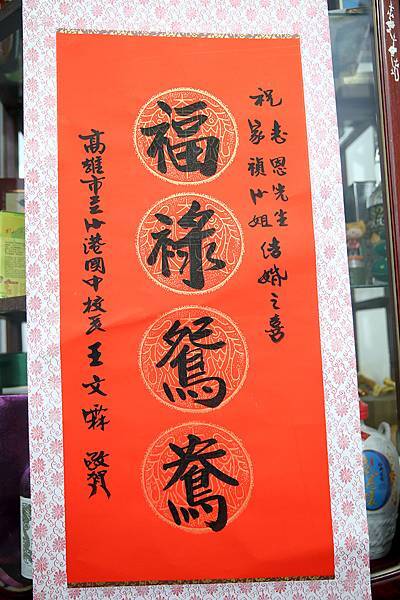 祝
志恩先生
家禎小姐
結婚之喜
福祿鴛鴦
高雄市立小港國中校長 王文霖 敬賀